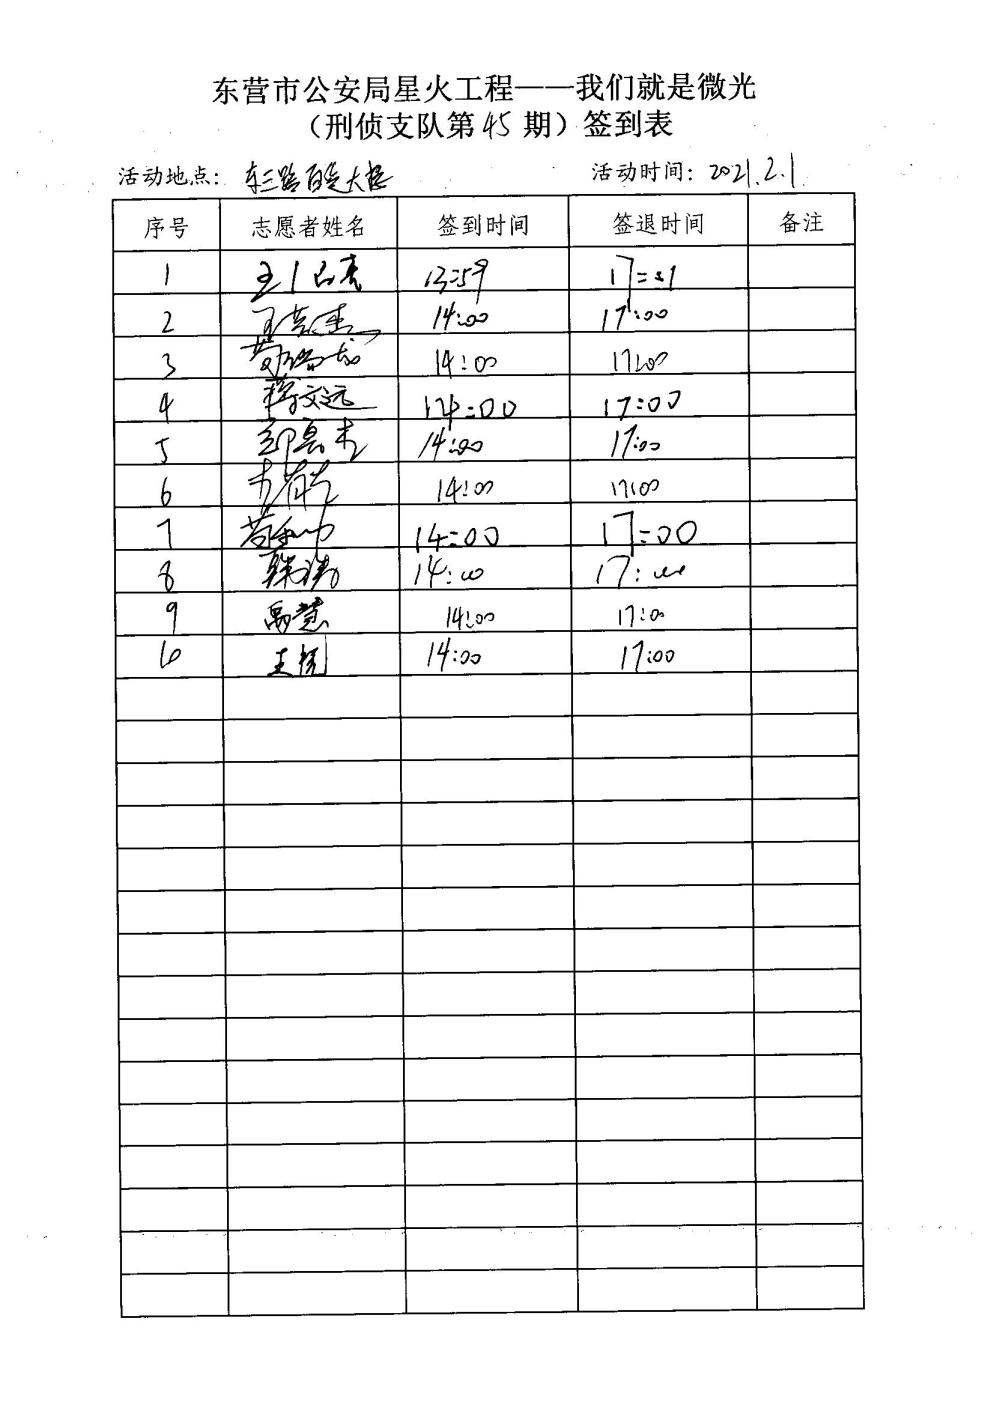 东营市公安局星火工程——我们就是微光
（刑侦支队第45期）签到表
活动地点：东三路 大楼 活动时间：2021.2.1
序号 志愿者姓名 签到时间 签退时间 备注
1 13:59 17:01
2 14:00 17:00
3 14:00 17:00
4 蒋文远 14:00 17:00
5 14:00 17:00
6 14:00 17:00
7 14:00 17:00
8 14:00 17:00
9 禹慧 14:00 17:00
10 14:00 17:00